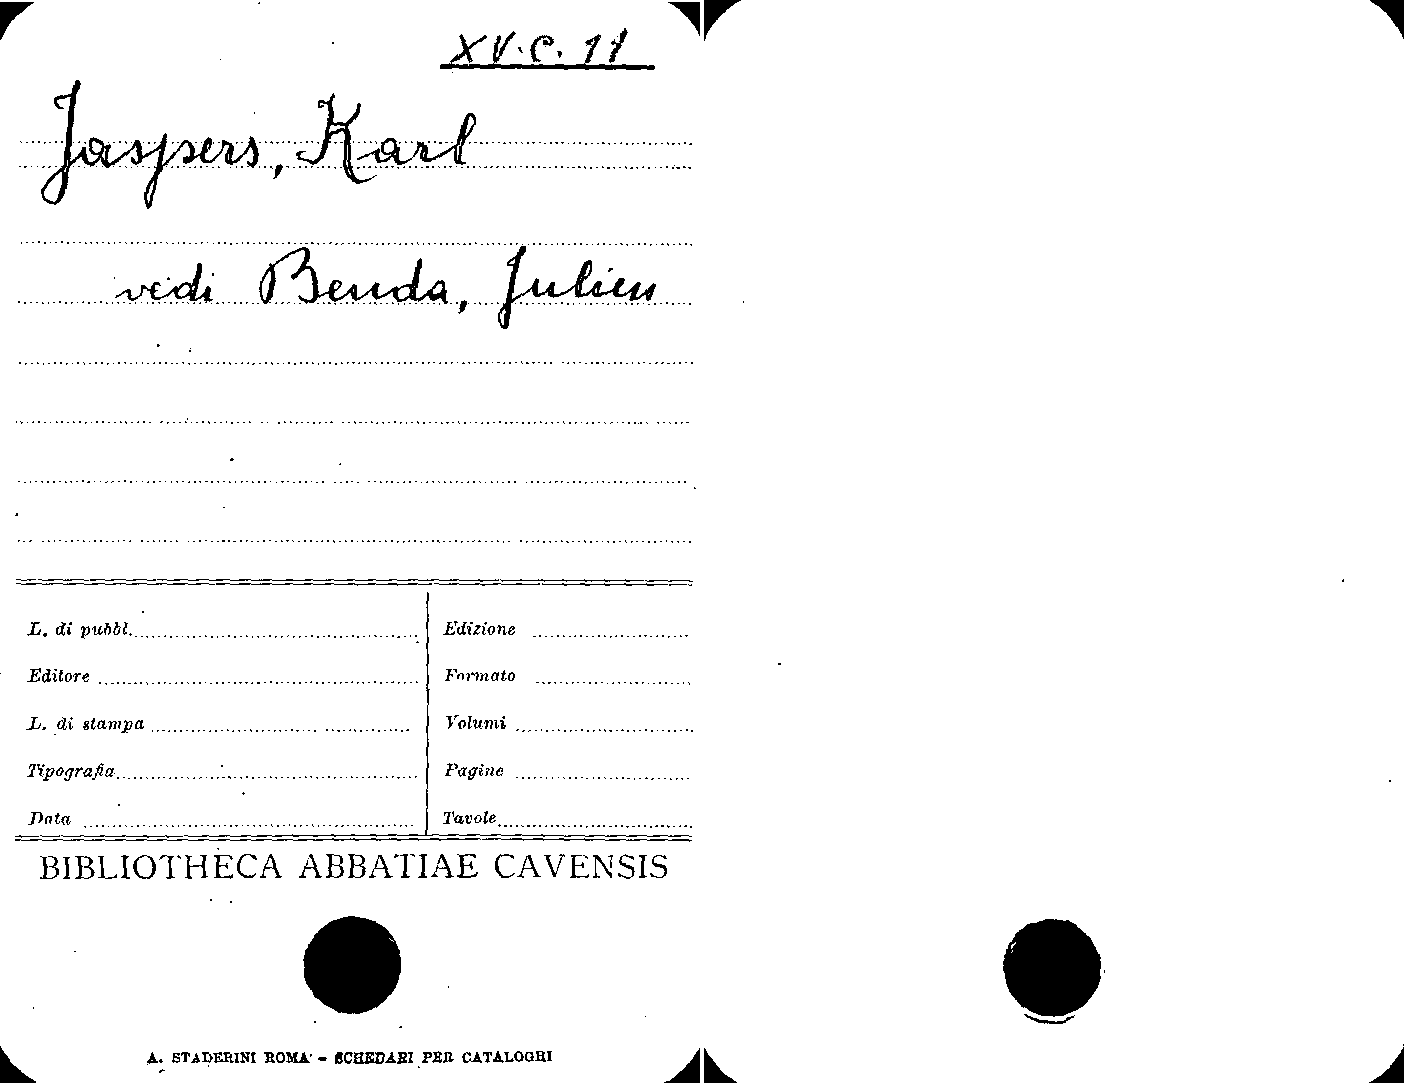 XV.C.11
Jaspers, Karl
vedi Benda, Julien
L. di pubbl.
Edizione
Editore
Formato
L. di stampa
Volumi
Tipografia
Pagine
Data
Tavole
BIBLIOTHECA ABBATIAE CAVENSIS
A. STADERINI ROMA - SCHEDARI PER CATALOGHI